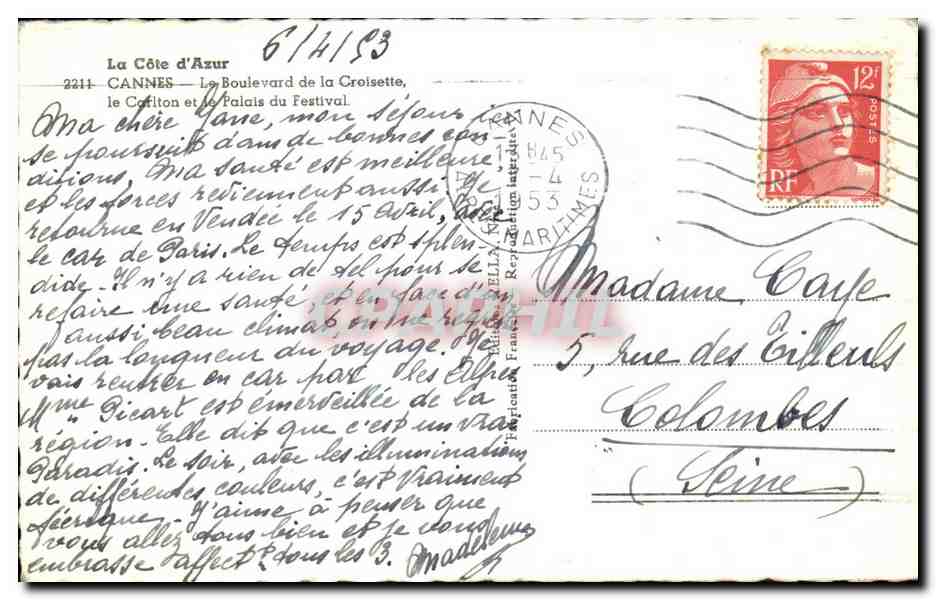 6/4/53
La Côte d'Azur
2211 CANNES — Le Boulevard de la Croisette,
le Carlton et le Palais du Festival.
Ma chère Jane, mon séjour
se poursuit dans de bonnes con
ditions, Ma santé est meilleure
et les forces reviennent aussi. Je
retourne en Vendée le 15 Avril, avec
le car de Paris. Le temps est splen
dide. Il n'y a rien de tel pour se
refaire une santé, et en face d'un
aussi beau climat on ne regrette
pas la longueur du voyage. Je
vais rentrer en car par les Alpes
Mme Picart est émerveillée de la
région. Elle dit que c'est un vrai
Paradis. Le soir, avec les illuminations
de différentes couleurs, c'est vraiment
féerique. J'aime à penser que
vous allez tous bien et je vous
embrasse affectt tous les 3. Madeleine
CANNES
845
-4
1953
MARITIMES
12F
POSTES
RF
Fabrication Française Reproduction interdite
CPAPHIL
Madame Caye
5, rue des Tilleuls
Colombes
(Seine)